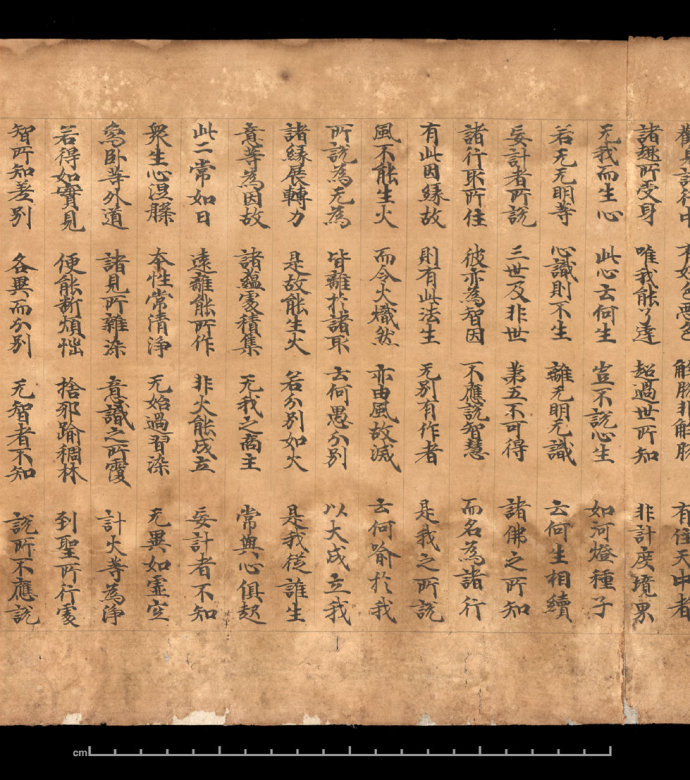 解脫非解脫 有住天中者
諸趣所受身 唯我能了達 超過世所知 非計度境界
无我而生心 此心云何生 豈不說心生 如河燈種子
若无无明等 心識則不生 離无明无識 云何生相續
妄計者所說 三世及非世 第五不可得 諸佛之所知
諸行取所住 彼亦為智因 不應說智慧 而名為諸行
有此因緣故 則有此法生 无別有作者 是我之所說
風不能生火 而令火熾然 亦由風故滅 云何喻於我
所說為无為 皆離於諸取 云何愚分別 以火成立我
諸緣展轉力 是故能生火 若分別如火 是我從誰生
意等為因故 諸蘊處積集 无我之商主 常與心俱起
此二常如日 遠離能所作 非火能成立 妄計者不知
衆生心涅槃 本性常清淨 无始過習染 无異如虛空
象臥等外道 諸見所雜染 意識之所覆 計火等為淨
若得如實見 便能斷煩惱 捨邪喻稠林 到聖所行處
智所知差別 各異而分別 无智者不知 說所不應說
cm